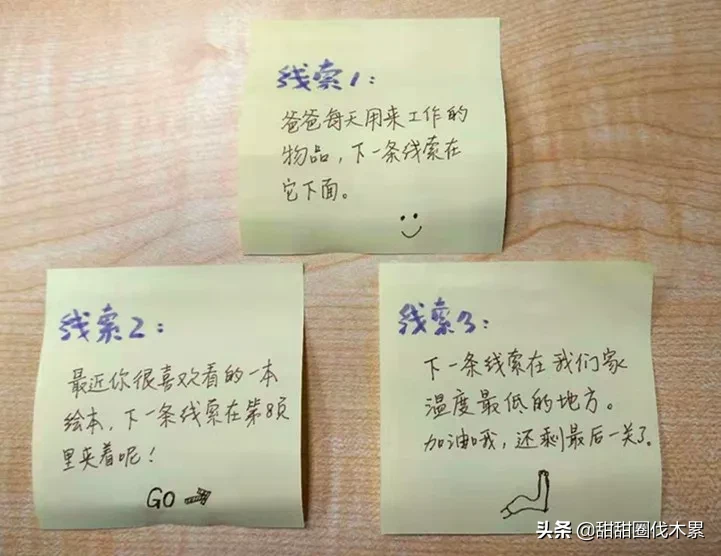 线索1：
爸爸每天用来工作的
物品，下一条线索在
它下面。
线索2：
最近你很喜欢看的一本
绘本，下一条线索在第8页
里夹着呢！
GO
线索3：
下一条线索在我们家
温度最低的地方。
加油哦，还剩最后一关了。
头条 @甜甜圈伐木累